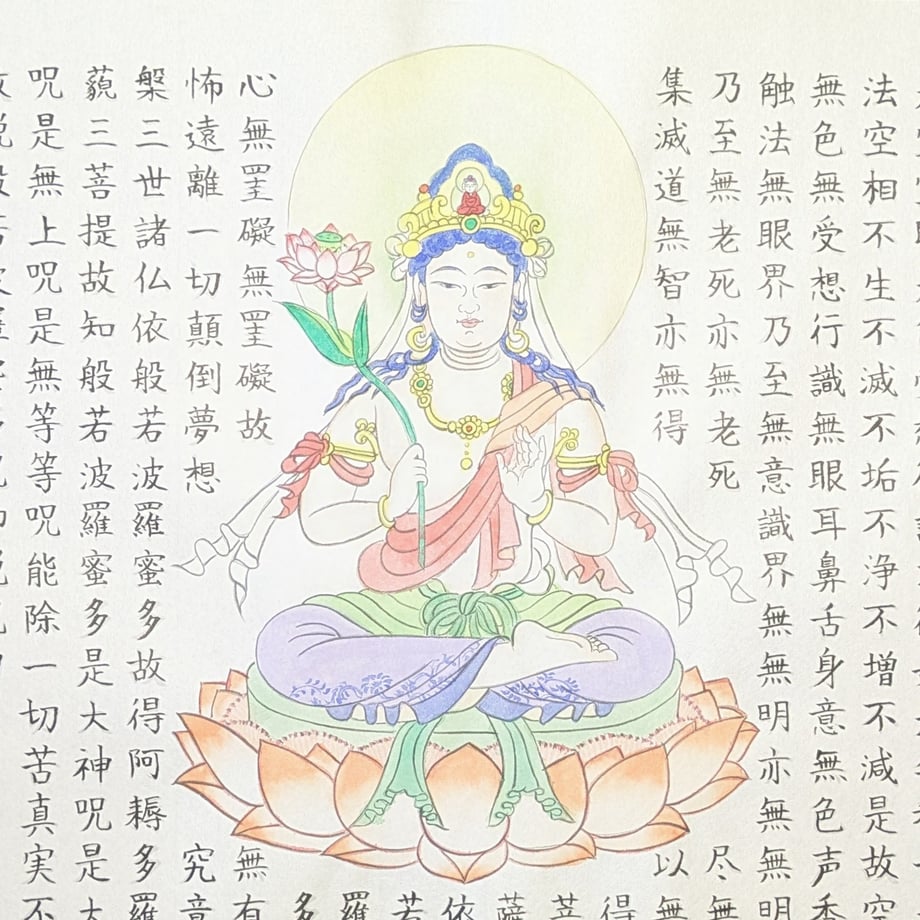 法空相不生不滅不垢不浄不増不減是故空
無色無受想行識無眼耳鼻舌身意無色声香
触法無眼界乃至無意識界無無明亦無無明
乃至無老死亦無老死 尽無
集滅道無智亦無得 以無
得
菩
薩
依
若
羅
多
心無罣礙無罣礙故 無有
怖遠離一切顛倒夢想 究竟
槃三世諸仏依般若波羅蜜多故得阿耨多羅
藐三菩提故知般若波羅蜜多是大神呪是大
呪是無上呪是無等等呪能除一切苦真実不